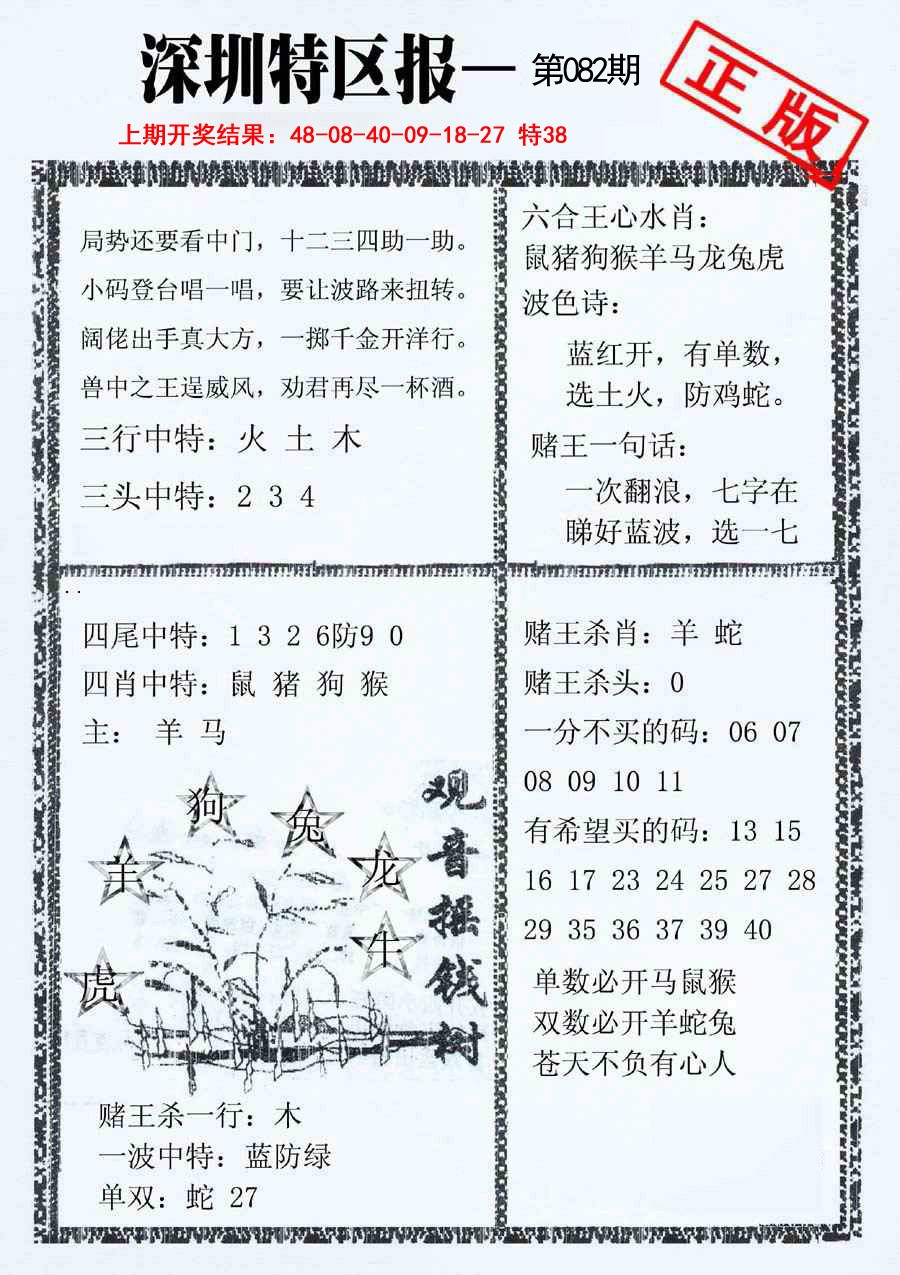 深圳特区报— 第082期
正版
上期开奖结果：48-08-40-09-18-27 特38
局势还要看中门，十二三四助一助。
小码登台唱一唱，要让波路来扭转。
阔佬出手真大方，一掷千金开洋行。
兽中之王逞威风，劝君再尽一杯酒。
三行中特：火 土 木
三头中特：2 3 4
六合王心水肖：
鼠猪狗猴羊马龙兔虎
波色诗：
蓝红开，有单数，
选土火，防鸡蛇。
赌王一句话：
一次翻浪，七字在
睇好蓝波，选一七
四尾中特：1 3 2 6防9 0
四肖中特：鼠 猪 狗 猴
主： 羊 马
狗
兔
羊
龙
牛
虎
观音摇钱树
赌王杀一行：木
一波中特：蓝防绿
单双：蛇 27
赌王杀肖：羊 蛇
赌王杀头：0
一分不买的码：06 07
08 09 10 11
有希望买的码：13 15
16 17 23 24 25 27 28
29 35 36 37 39 40
单数必开马鼠猴
双数必开羊蛇兔
苍天不负有心人